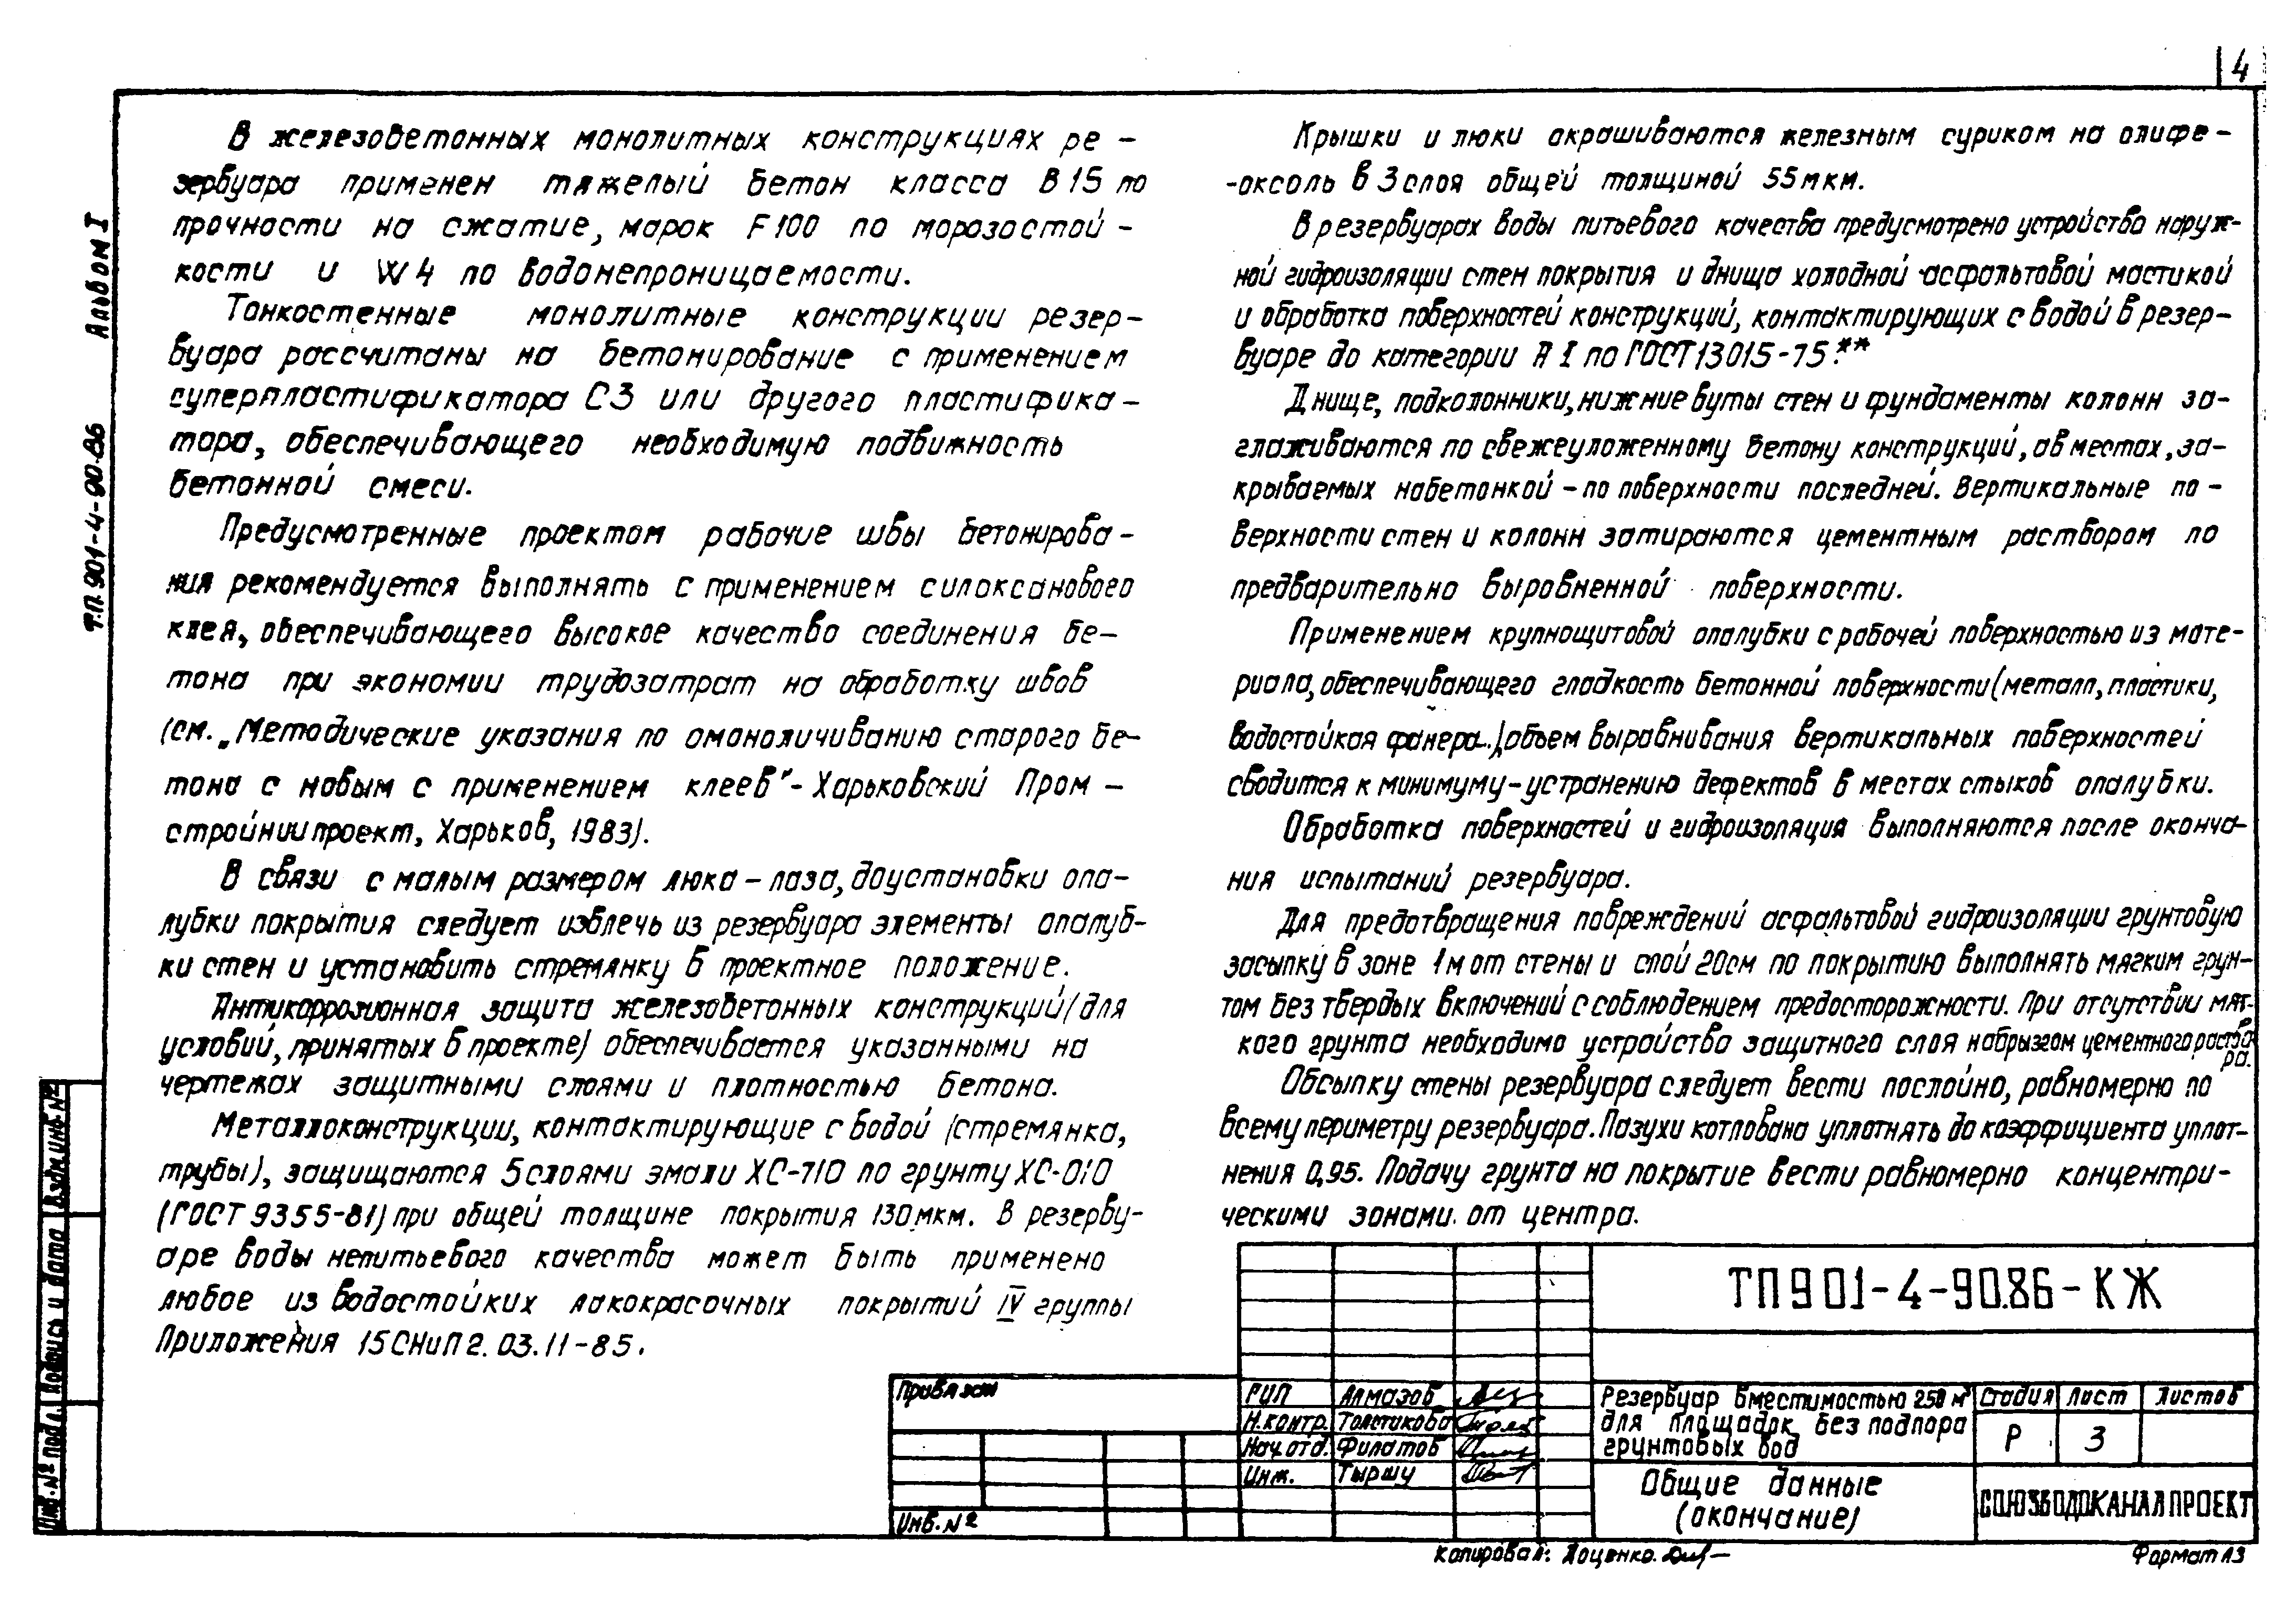 4
Альбом I
Т.П. 901-4-90.86
В железобетонных монолитных конструкциях ре-
зервуара применен тяжелый бетон класса В15 по
прочности на сжатие, марок F100 по морозостой-
кости и W4 по водонепроницаемости.
Тонкостенные монолитные конструкции резер-
вуара рассчитаны на бетонирование с применением
суперпластификатора С3 или другого пластифика-
тора, обеспечивающего необходимую подвижность
бетонной смеси.
Предусмотренные проектом рабочие швы бетонирова-
ния рекомендуется выполнять с применением силоксанового
клея, обеспечивающего высокое качество соединения бе-
тона при экономии трудозатрат на обработку швов
(см. „Методические указания по омоноличиванию старого бе-
тона с новым с применением клеев" - Харьковский Пром-
стройниипроект, Харьков, 1983).
В связи с малым размером люка-лаза, до установки опа-
лубки покрытия следует извлечь из резервуара элементы опалуб-
ки стен и установить стремянку в проектное положение.
Антикоррозионная защита железобетонных конструкций (для
условий, принятых в проекте) обеспечивается указанными на
чертежах защитными слоями и плотностью бетона.
Металлоконструкции, контактирующие с водой (стремянка,
трубы), защищаются 5 слоями эмали ХС-710 по грунту ХС-010
(ГОСТ 9355-81) при общей толщине покрытия 130 мкм. В резерву-
аре воды непитьевого качества может быть применено
любое из водостойких лакокрасочных покрытий IV группы
Приложения 15 СНиП 2.03.11-85.
Крышки и люки окрашиваются железным суриком на олифе-
-оксоль в 3 слоя общей толщиной 55 мкм.
В резервуарах воды питьевого качества предусмотрено устройство наруж-
ной гидроизоляции стен покрытия и днища холодной асфальтовой мастикой
и обработка поверхностей конструкций, контактирующих с водой в резер-
вуаре до категории А I по ГОСТ 13015-75.**
Днище, подколонники, нижние буты стен и фундаменты колонн за-
глаживаются по свежеуложенному бетону конструкций, а в местах, за-
крываемых набетонкой - по поверхности последней. Вертикальные по-
верхности стен и колонн затираются цементным раствором по
предварительно выровненной поверхности.
Применением крупнощитовой опалубки с рабочей поверхностью из мате-
риала, обеспечивающего гладкость бетонной поверхности (металл, пластики,
водостойкая фанера..) объем выравнивания вертикальных поверхностей
сводится к минимуму-устранению дефектов в местах стыков опалубки.
Обработка поверхностей и гидроизоляция выполняются после оконча-
ния испытаний резервуара.
Для предотвращения повреждений асфальтовой гидроизоляции грунтовую
засыпку в зоне 1м от стены и слой 20см по покрытию выполнять мягким грун-
том без твердых включений с соблюдением предосторожности. При отсутствии мяг-
кого грунта необходимо устройство защитного слоя набрызгом цементного раство-
ра.
Обсыпку стены резервуара следует вести послойно, равномерно по
всему периметру резервуара. Пазухи котлована уплотнять до коэффициента уплот-
нения 0,95. Подачу грунта на покрытие вести равномерно концентри-
ческими зонами от центра.
Взам.инв.№
Подпись и дата
Инв.№ подл.
Привязан
Инв.№
ТП 901-4-90.86-КЖ
ГИП Алмазов
Н.контр. Толстикова
Нач.отд. Филатов
Инж. Тыршу
Резервуар вместимостью 250 м³
для площадок без подпора
грунтовых вод
Стадия Лист Листов
Р 3
Общие данные
(окончание)
СОЮЗВОДОКАНАЛПРОЕКТ
Копировал: Лоценко.
Формат А3